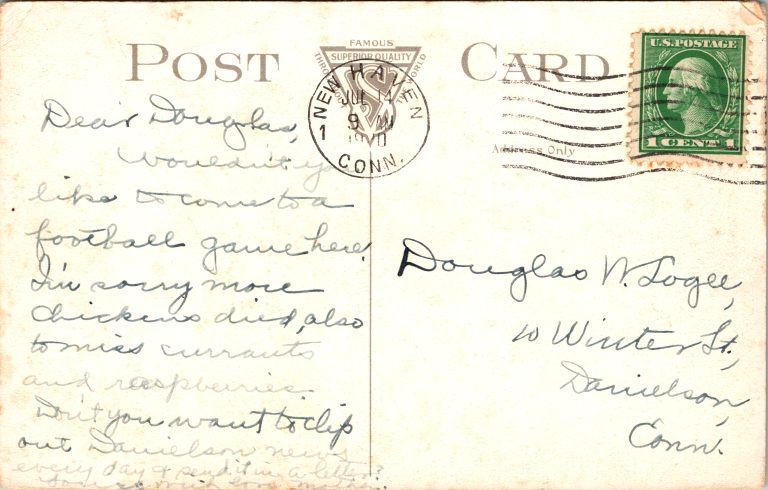 POST CARD
FAMOUS
SUPERIOR QUALITY
NEW HAVEN
JUL 14
9 AM
CONN.
1
U.S. POSTAGE
1 CENT 1
Address Only
Dear Douglas,
Wouldn't you
like to come to a
football game here.
I'm sorry more
chickens died, also
to miss currants
and raspberries.
Don't you want to clip
out Danielson news
every day & send it in a letter?
much love mother.
Douglas W. Logee,
10 Winter St.,
Danielson,
Conn.